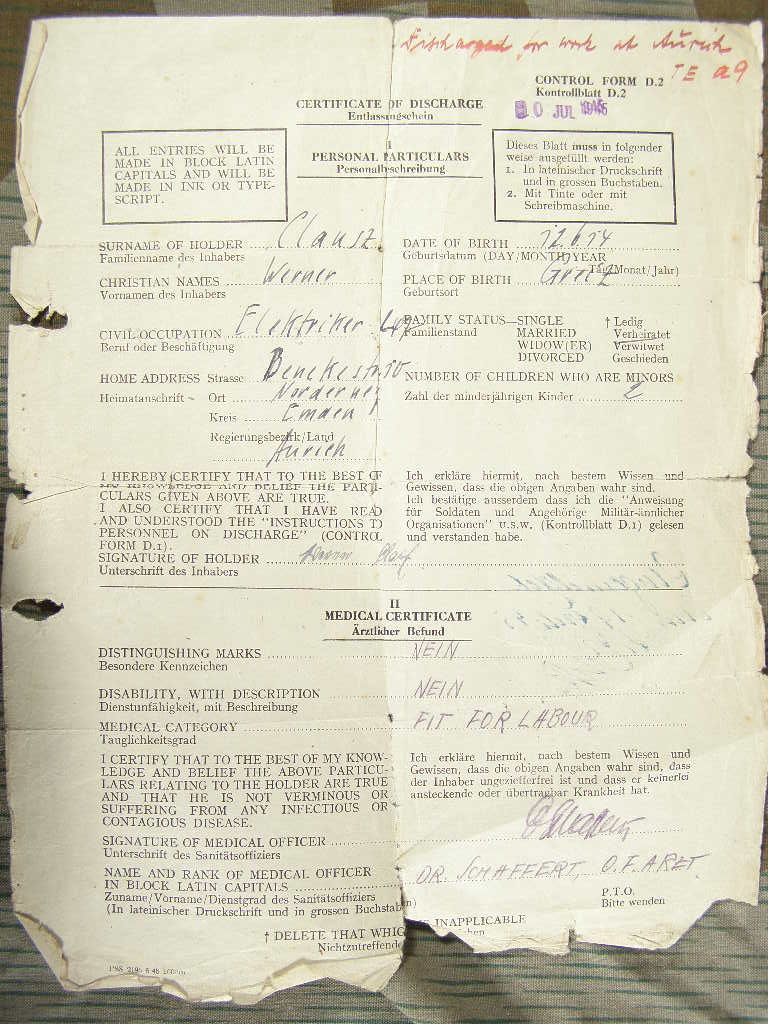 Discharged for work at Aurich
TE a9
CONTROL FORM D.2
Kontrollblatt D.2
CERTIFICATE OF DISCHARGE
Entlassungschein
JUL 1945
I
PERSONAL PARTICULARS
Personalbeschreibung
ALL ENTRIES WILL BE
MADE IN BLOCK LATIN
CAPITALS AND WILL BE
MADE IN INK OR TYPE-
SCRIPT.
Dieses Blatt muss in folgender
weise ausgefüllt werden:
1. In lateinischer Druckschrift
und in grossen Buchstaben.
2. Mit Tinte oder mit
Schreibmaschine.
SURNAME OF HOLDER
Familienname des Inhabers
CHRISTIAN NAMES Werner
Vornamen des Inhabers
CIVIL OCCUPATION Elektriker
Beruf oder Beschäftigung
HOME ADDRESS Strasse
Heimatanschrift - Ort Norderney
Kreis Emden
Regierungsbezirk/Land
Aurich
DATE OF BIRTH 12.6.14
Geburtsdatum (DAY/MONTH/YEAR
Tag/Monat/Jahr)
PLACE OF BIRTH Greiz
Geburtsort
FAMILY STATUS—SINGLE † Ledig
Familienstand MARRIED Verheiratet
WIDOW(ER) Verwitwet
DIVORCED Geschieden
NUMBER OF CHILDREN WHO ARE MINORS
Zahl der minderjährigen Kinder 2
I HEREBY CERTIFY THAT TO THE BEST OF
MY KNOWLEDGE AND BELIEF THE PARTI-
CULARS GIVEN ABOVE ARE TRUE.
I ALSO CERTIFY THAT I HAVE READ
AND UNDERSTOOD THE "INSTRUCTIONS TO
PERSONNEL ON DISCHARGE" (CONTROL
FORM D.1).
SIGNATURE OF HOLDER
Unterschrift des Inhabers
Ich erkläre hiermit, nach bestem Wissen und
Gewissen, dass die obigen Angaben wahr sind.
Ich bestätige ausserdem dass ich die "Anweisung
für Soldaten und Angehörige Militär-ähnlicher
Organisationen" U.S.W. (Kontrollblatt D.1) gelesen
und verstanden habe.
II
MEDICAL CERTIFICATE
Ärztlicher Befund
DISTINGUISHING MARKS NEIN
Besondere Kennzeichen
DISABILITY, WITH DESCRIPTION NEIN
Dienstunfähigkeit, mit Beschreibung
MEDICAL CATEGORY FIT FOR LABOUR
Tauglichkeitsgrad
I CERTIFY THAT TO THE BEST OF MY KNOW-
LEDGE AND BELIEF THE ABOVE PARTICU-
LARS RELATING TO THE HOLDER ARE TRUE
AND THAT HE IS NOT VERMINOUS OR
SUFFERING FROM ANY INFECTIOUS OR
CONTAGIOUS DISEASE.
Ich erkläre hiermit, nach bestem Wissen und
Gewissen, dass die obigen Angaben wahr sind, dass
der Inhaber ungezieferfrei ist und dass er keinerlei
ansteckende oder übertragbar Krankheit hat.
SIGNATURE OF MEDICAL OFFICER
Unterschrift des Sanitätsoffiziers
NAME AND RANK OF MEDICAL OFFICER
IN BLOCK LATIN CAPITALS DR. SCHAFFERT, O.F. ARZT.
Zuname/Vorname/Dienstgrad des Sanitätsoffiziers
(In lateinischer Druckschrift und in grossen Buchstaben)
P.T.O.
Bitte wenden
† DELETE THAT WHIC
E INAPPLICABLE
Nichtzutreffende